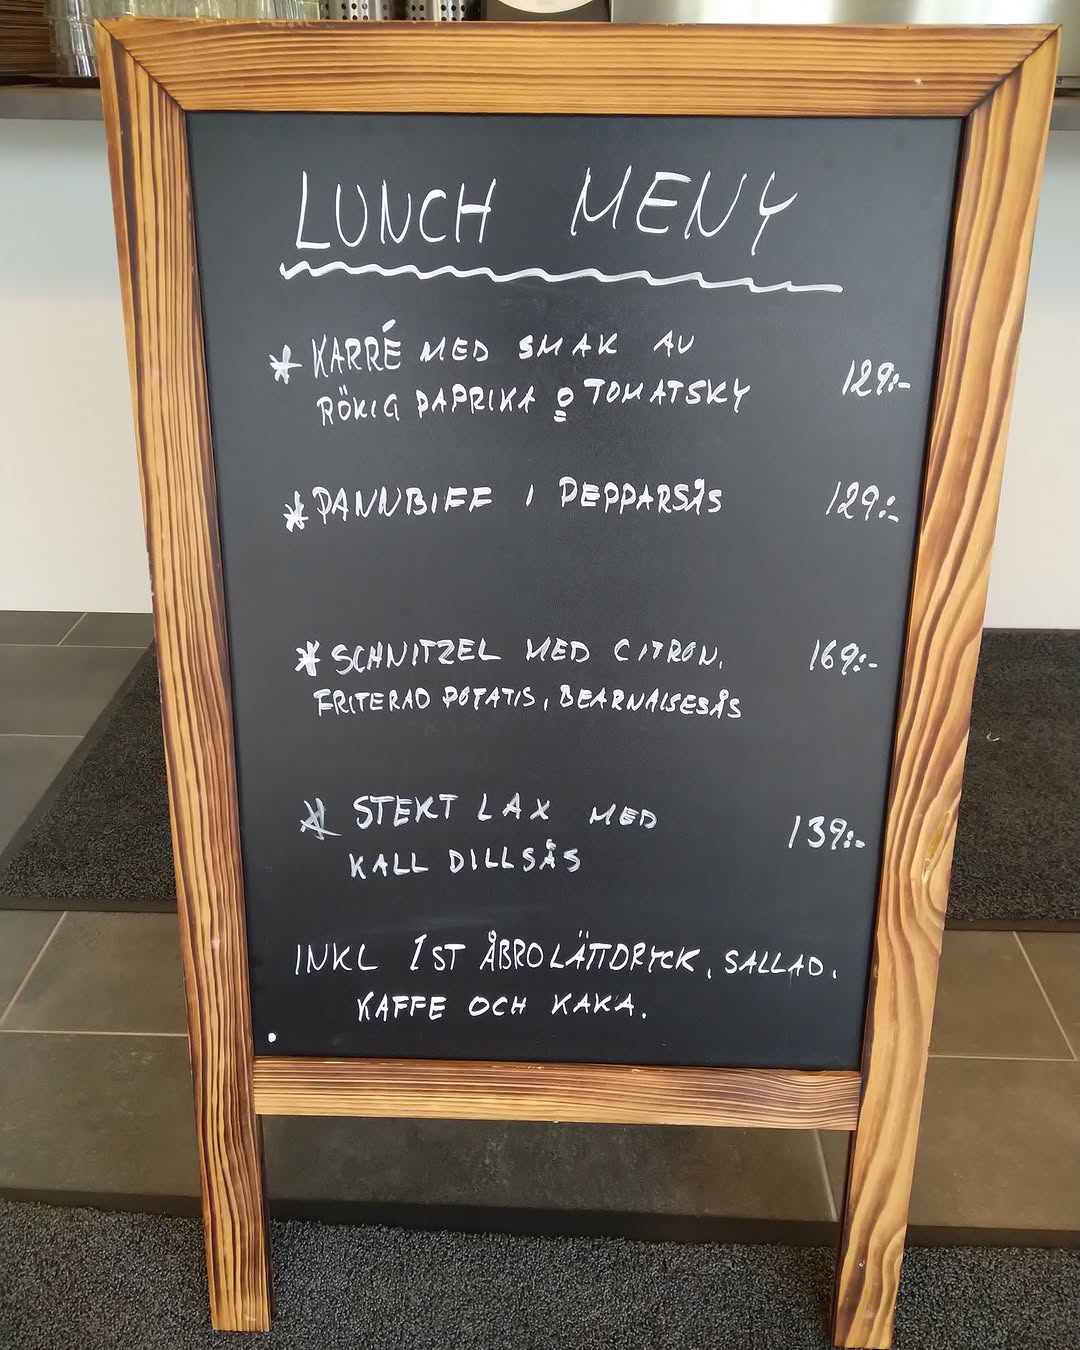 LUNCH MENY
* KARRÉ MED SMAK AV
RÖKIG PAPRIKA o TOMATSKY 129:-
* PANNBIFF I PEPPARSÅS 129:-
* SCHNITZEL MED CITRON, 169:-
FRITERAD POTATIS, BEARNAISESÅS
* STEKT LAX MED
KALL DILLSÅS 139:-
INKL 1ST ÅBRO LÄTTDRYCK, SALLAD,
KAFFE OCH KAKA.